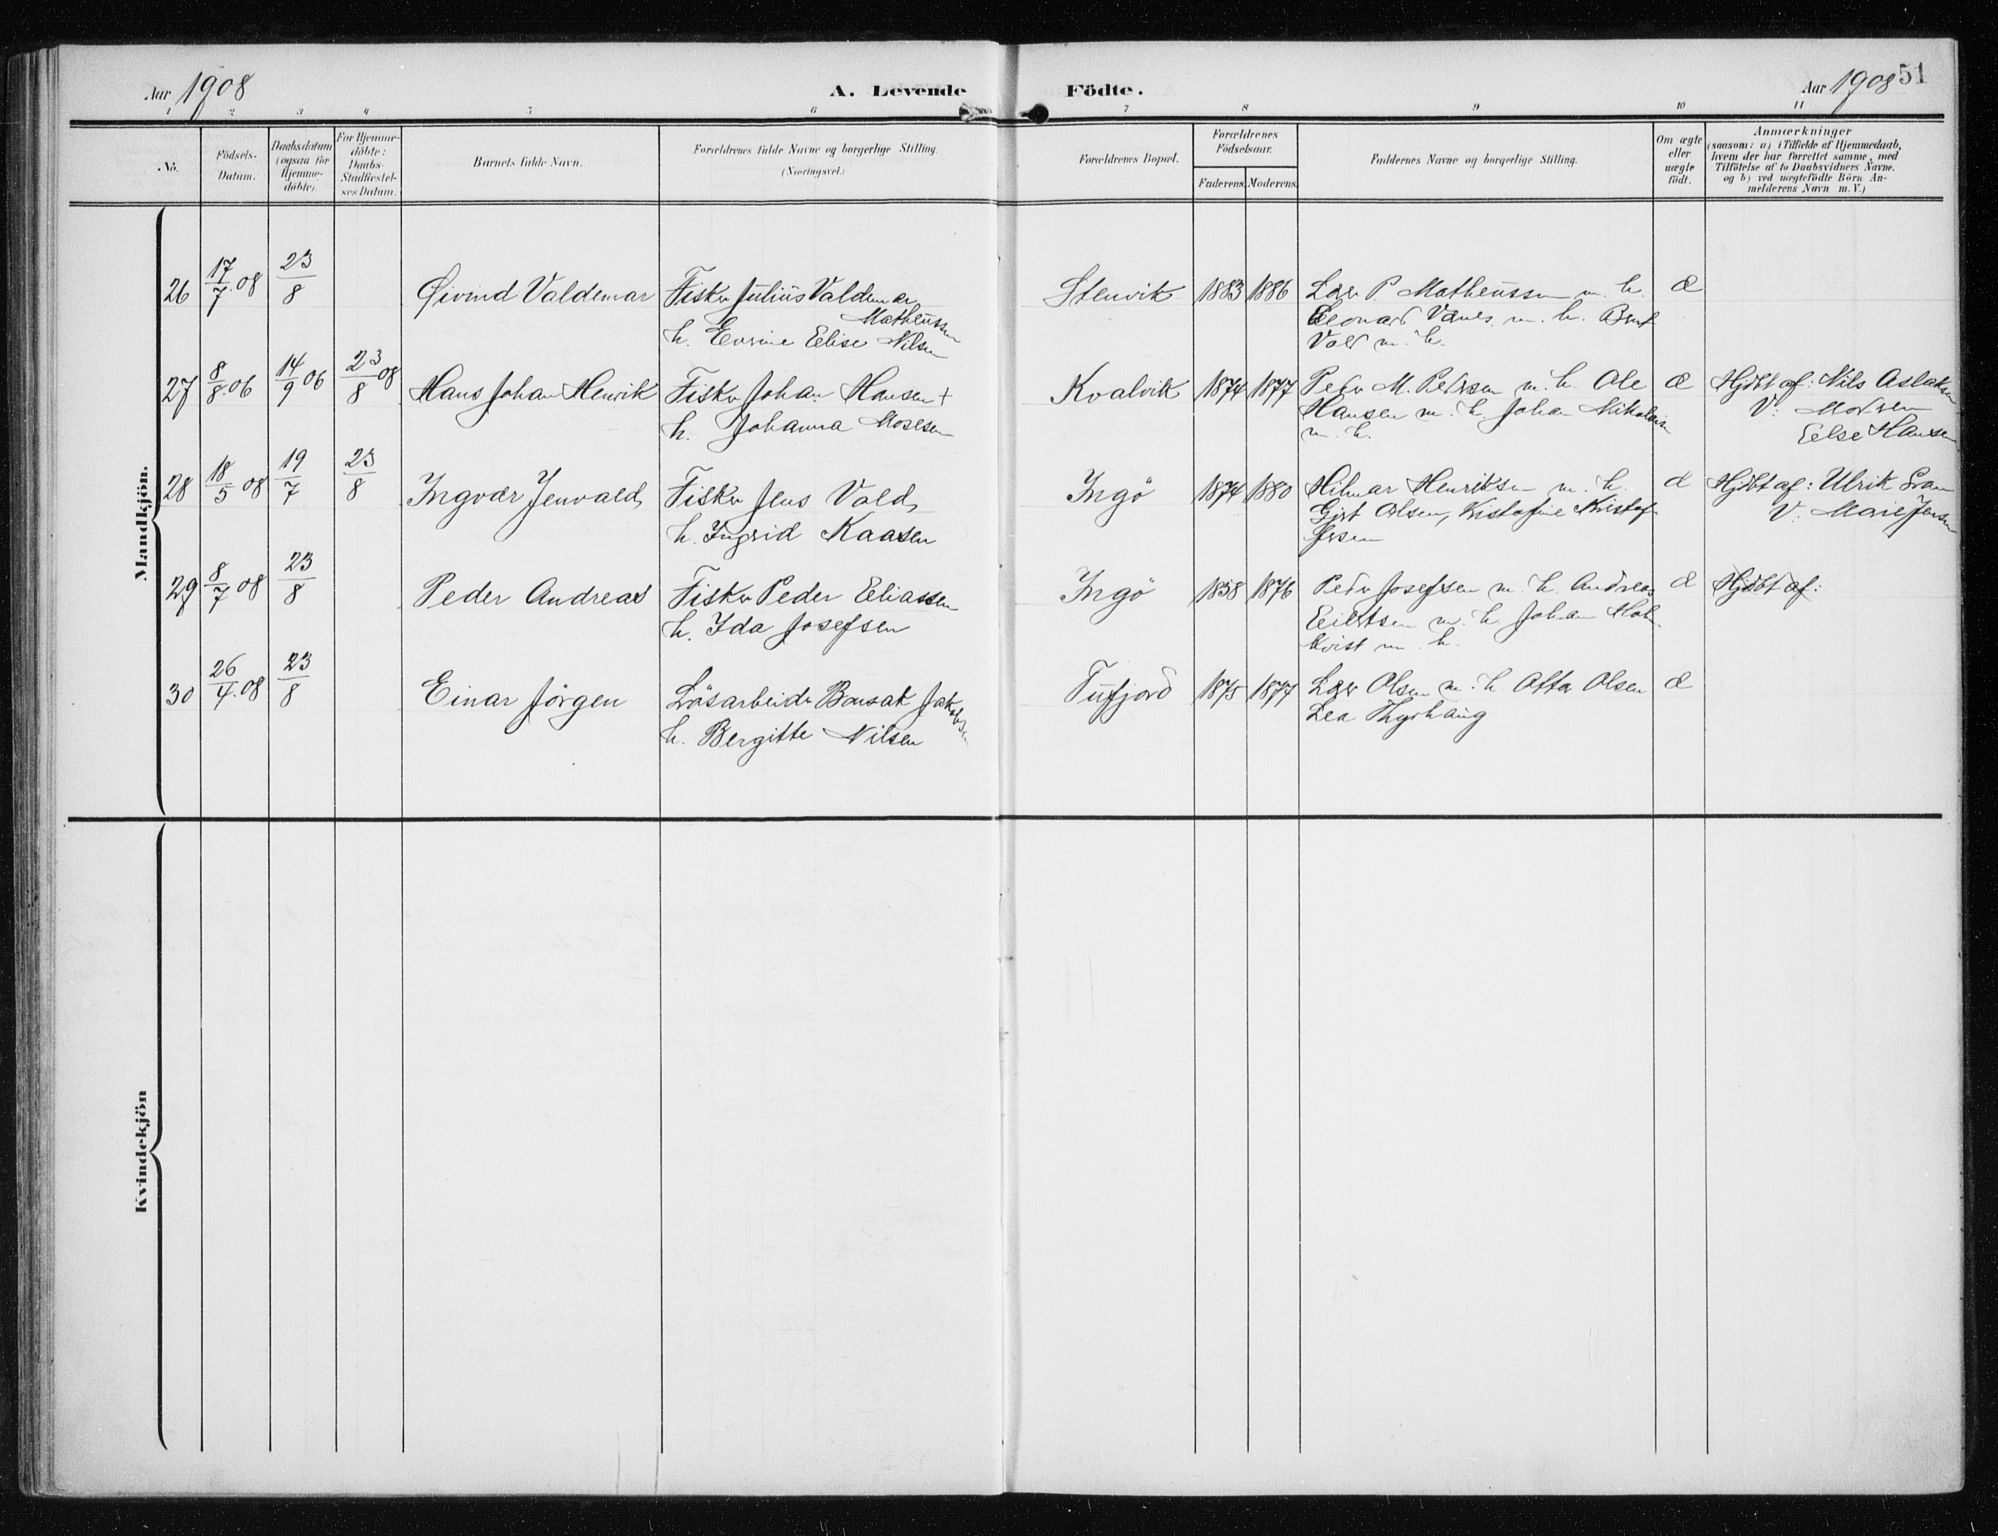 Aar 1908 A. Levende Födte. Aar 1908 51
1 2 3 4 5 6 7 8 9 10 11
No.
Födsels-Datum.
Daabsdatum (ogsaa for Hjemmedöbte).
For Hjemmedöbte: Daabs-Stadfæstelses Datum.
Barnets fulde Navn.
Forældrenes fulde Navne og borgerlige Stilling. (Næringsvei.)
Forældrenes Bopæl.
Forældrenes Födselsaar.
Faderens. Moderens.
Faddernes Navne og borgerlige Stilling.
Om ægte eller uægte födt.
Anmærkninger
(saasom: a) i Tilfælde af Hjemmedaab,
hvem der har forrettet samme, med
Tilföielse af to Daabsvidners Navne.
og b) ved uægtefödte Börn An-
melderens Navn m. V.)
Mandkjön.
26 17/7 08 23/8 Øivind Valdemar Fisker Julius Valdemar Stenvik 1883 1886 P. Matheussen m. h. æ
Matheussen
h. Elise Nilsen
m. h.
27 8/8 06 14/9 06 23/8 08 Hans Johan Henrik Fisker Johan Hansen + Kvalvik 1874 1877 Peder M. Pedersen m. h. Ole æ Hjdbt af: Nils Aslaksen
h. Johanna Mosesen Hansen m. h. Johan Nikolaisen V: Moren
m. h. Else Hansen
28 18/5 08 19/7 23/8 Ingvar Jenvald Fisker Jens Vald Ingö 1874 1880 Hilmar Henriksen m. h. æ Hjdbt af: Ulrik
h. Ingrid Kaasen Olsen, V: Marie Jensen
29 8/7 08 23/8 Peder Andreas Fisker Peder Eliassen Ingö 1858 1876 Peder Josefsen m. h. Andreas æ Hjdbt af:
h. Ida Josefsen Eilertsen m. h. Johan Hol-
kvist m. h.
30 26/4 08 23/8 Einar Jörgen Lösarbeider Jakobsen Tufjord 1875 1877 Olsen m. h. Olsen æ
h. Bergitte Nilsen Lea
Kvindekjön